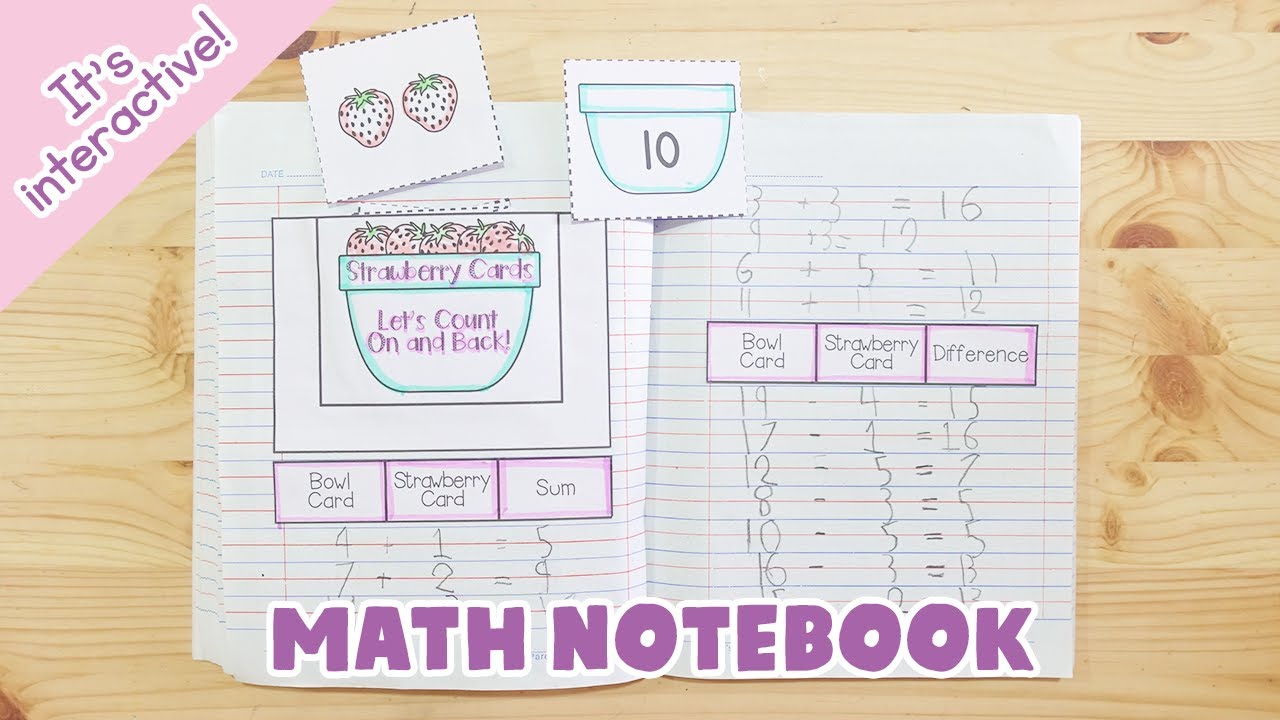 It's
interactive!
10
DATE
Strawberry Cards
Let's Count
On and Back!
Bowl Card Strawberry Card Sum
4 + 1 = 5
7 + 2 = 9
3 + 3 = 16
9 +3= 12
6 + 5 = 11
11 + 1 = 12
Bowl Card Strawberry Card Difference
19 - 4 = 15
17 - 1 = 16
12 - 5 = 7
8 - 3 = 5
10 - 5 = 5
16 - 3 = 13
MATH NOTEBOOK